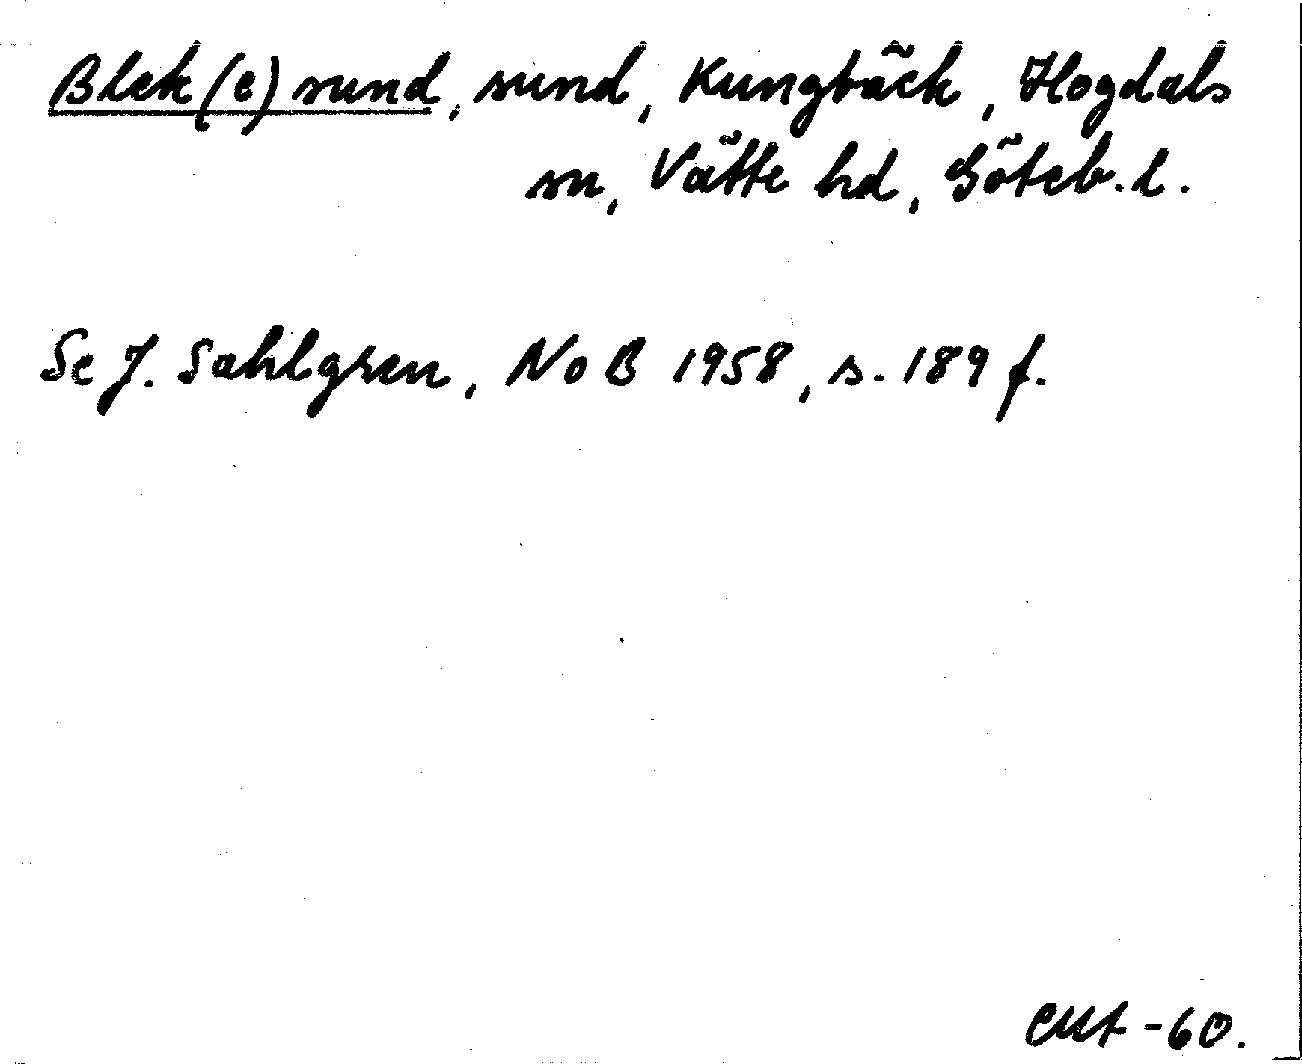 Blek(e)sund, sund, Kungbäck, Hogdals
sn, Vätte hd, Göteb. l.
Se J. Sahlgren, NoB 1958, s. 189 f.
-60.